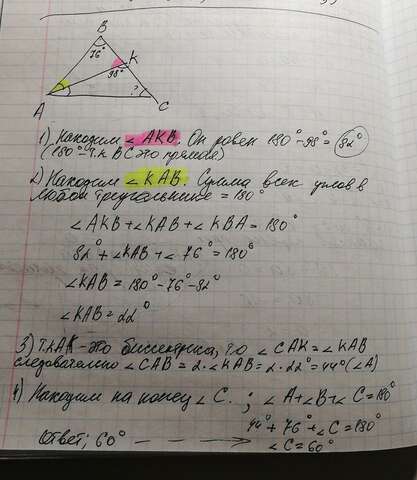 B
76°
K
98°
A
?
C
1) Находим ∠AKB. Он равен 180°-98°=82°
(180°-т.к BC это прямая)
2) Находим ∠KAB. Сумма всех углов в
любом треугольнике = 180°
∠AKB+∠KAB+∠KBA=180°
82°+∠KAB+∠76°=180°
∠KAB=180°-76°-82°
∠KAB=22°
3) Т.к AK-это биссектриса, то ∠CAK=∠KAB
следовательно ∠CAB=2·∠KAB=2·22°=44°(∠A)
4) Находим на конец ∠C. ; ∠A+∠B+∠C=180°
44°+76°+∠C=180°
∠C=60°
Ответ; 60°